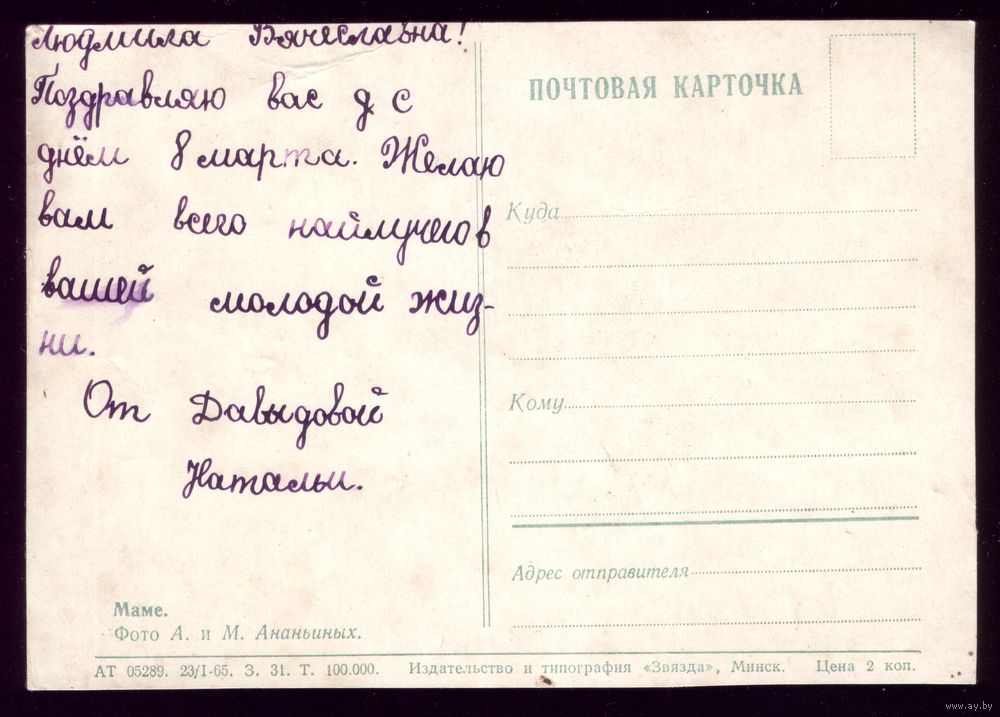 Людмила Вячеславна!
Поздравляю вас д с
днём 8 марта. Желаю
вам всего найлучегов
вашей молодой жиз-
ни.
От Давыдовой
Натальи.
Маме.
Фото А. и М. Ананьиных.
ПОЧТОВАЯ КАРТОЧКА
Куда
Кому
Адрес отправителя
АТ 05289. 23/I-65. З. 31. Т. 100.000. Издательство и типография «Звязда», Минск. Цена 2 коп.
www.ay.by